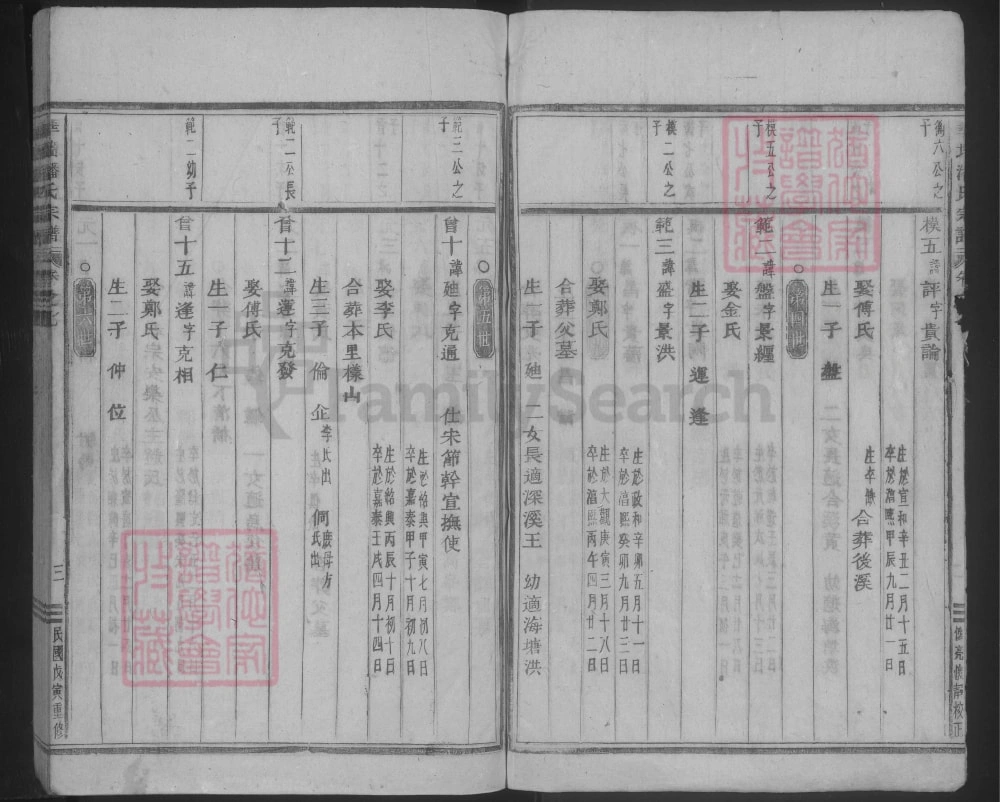 衡六公之子
模五諱評字貴論
生於宣和辛丑二月十五日
卒於淳熙甲辰九月廿一日
娶傅氏
生卒佚 合葬後溪
生一子 盤
第十四世
模五公之子
範二諱盤字景纏
娶金氏
生二子 運 逢
模二公之子
範三諱盛字景洪
生於政和辛卯五月十一日
卒於淳熙癸卯九月廿三日
娶鄭氏
生於大觀庚寅三月十八日
卒於淳熙丙午四月廿二日
合葬父墓
生一子 廸 二女長適深溪王 幼適海塘洪
第十五世
範三公之子
曾十諱廸字克通 仕未節幹宣撫使
生於紹興甲寅七月初八日
卒於嘉泰甲子十月初九日
娶李氏
生於紹興丙辰十月初十日
卒於嘉泰壬戌四月十四日
合葬本里樣山
生三子 倫 企 李氏出 侗 庶母方氏出
範二公長子
曾十二諱運字克發
娶傅氏
生一子 仁
範二幼子
曾十五諱逢字克相
娶鄭氏
生二子 仲 位
第十六世
潘氏宗譜
三
民國戊寅重修
FamilySearch